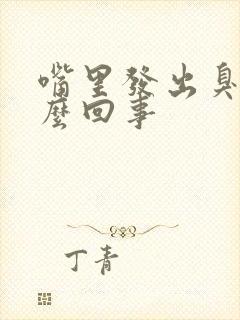 嘴里發出臭
麼回事
丁青